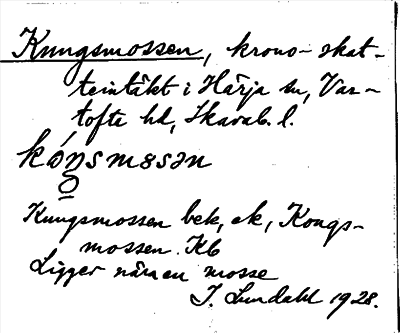 Kungsmossen, krono-skat-
teintäkt i Härja sn, Var-
tofta hd, Skarab. l.
Kungsmossen bek, ek, Kongs-
mossen. Kb
Ligger nära en mosse
J. Lundahl 1928.